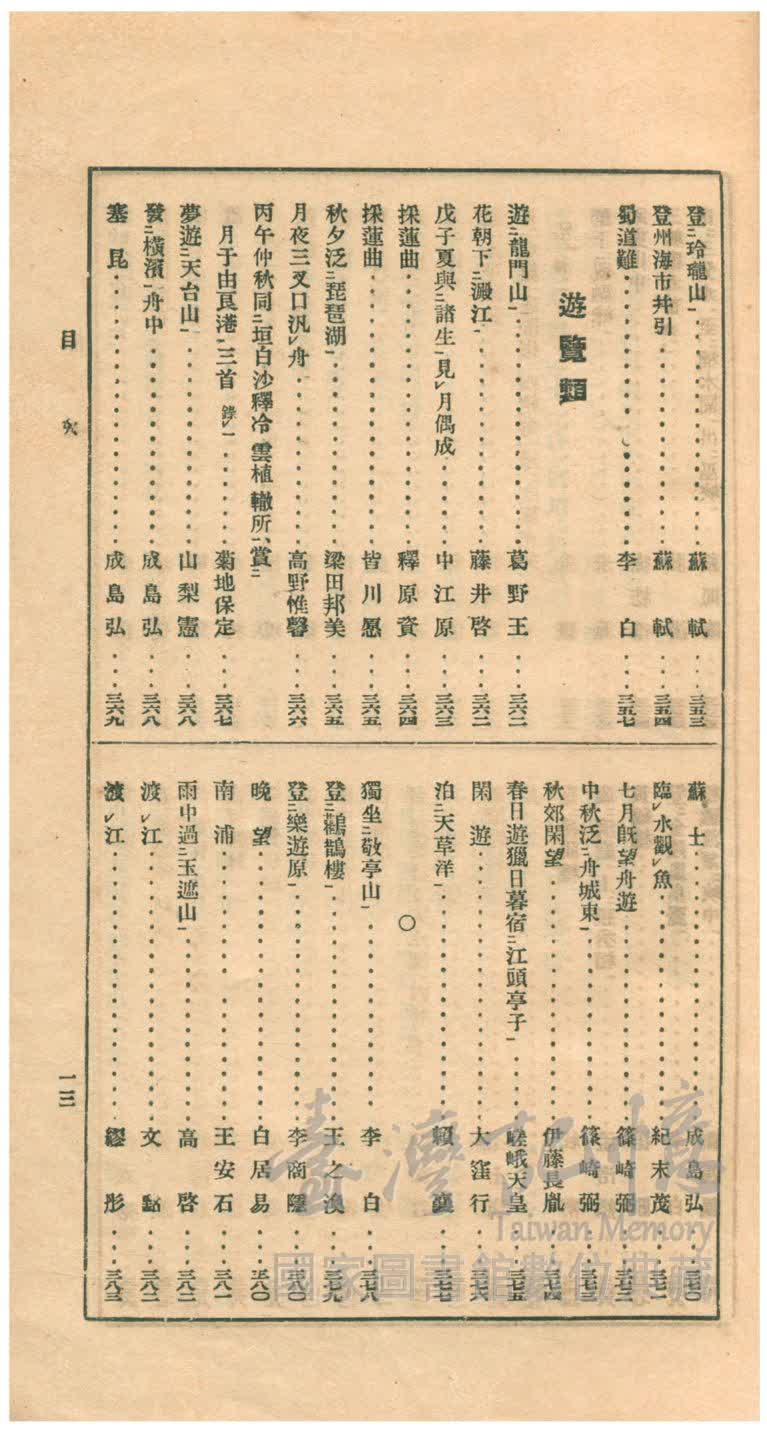 登二玲瓏山一……蘇軾…三五三
登州海市幷引……蘇軾…三五四
蜀道難……李白…三五七
遊覽類
遊二龍門山一……葛野王…三六二
花朝下二澱江一……藤井啓…三六二
戊子夏與二諸生一見レ月偶成……中江原…三六三
採蓮曲……釋原資…三六四
採蓮曲……皆川愿…三六五
秋夕泛二琵琶湖一……梁田邦美…三六五
月夜三叉口汎レ舟……高野惟馨…三六六
丙午仲秋同二垣白沙釋冷雲植轍所一、賞二
月于由良港一三首 錄レ一……菊地保定…三六七
夢遊二天台山一……山梨憲…三六八
發二橫濱一舟中……成島弘…三六八
塞昆……成島弘…三六九
蘇士……成島弘…三七〇
臨レ水觀レ魚……紀末茂…三七一
七月既望舟遊……篠崎弼…三七二
中秋泛二舟城東一……篠崎弼…三七三
秋郊閑望……伊藤長胤…三七四
春日遊獵日暮宿二江頭亭子一……嵯峨天皇…三七五
閑遊……大窪行…三七六
泊二天草洋一……賴襄…三七七
〇
獨坐二敬亭山一……李白…三七八
登二鸛鵲樓一……王之渙…三七九
登二樂遊原一……李商隱…三八〇
晚望……白居易…三八〇
南浦……王安石…三八一
雨中過二玉遮山一……高啓…三八二
渡レ江……文點…三八二
渡レ江……繆彤…三八三
目次
一三
臺灣記憶
Taiwan Memory
國家圖書館數位典藏